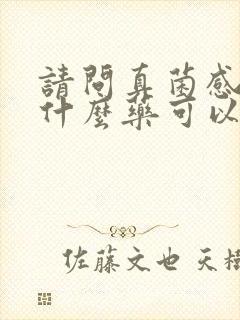 請問真菌感
什麼藥可以
佐藤文也 天樹